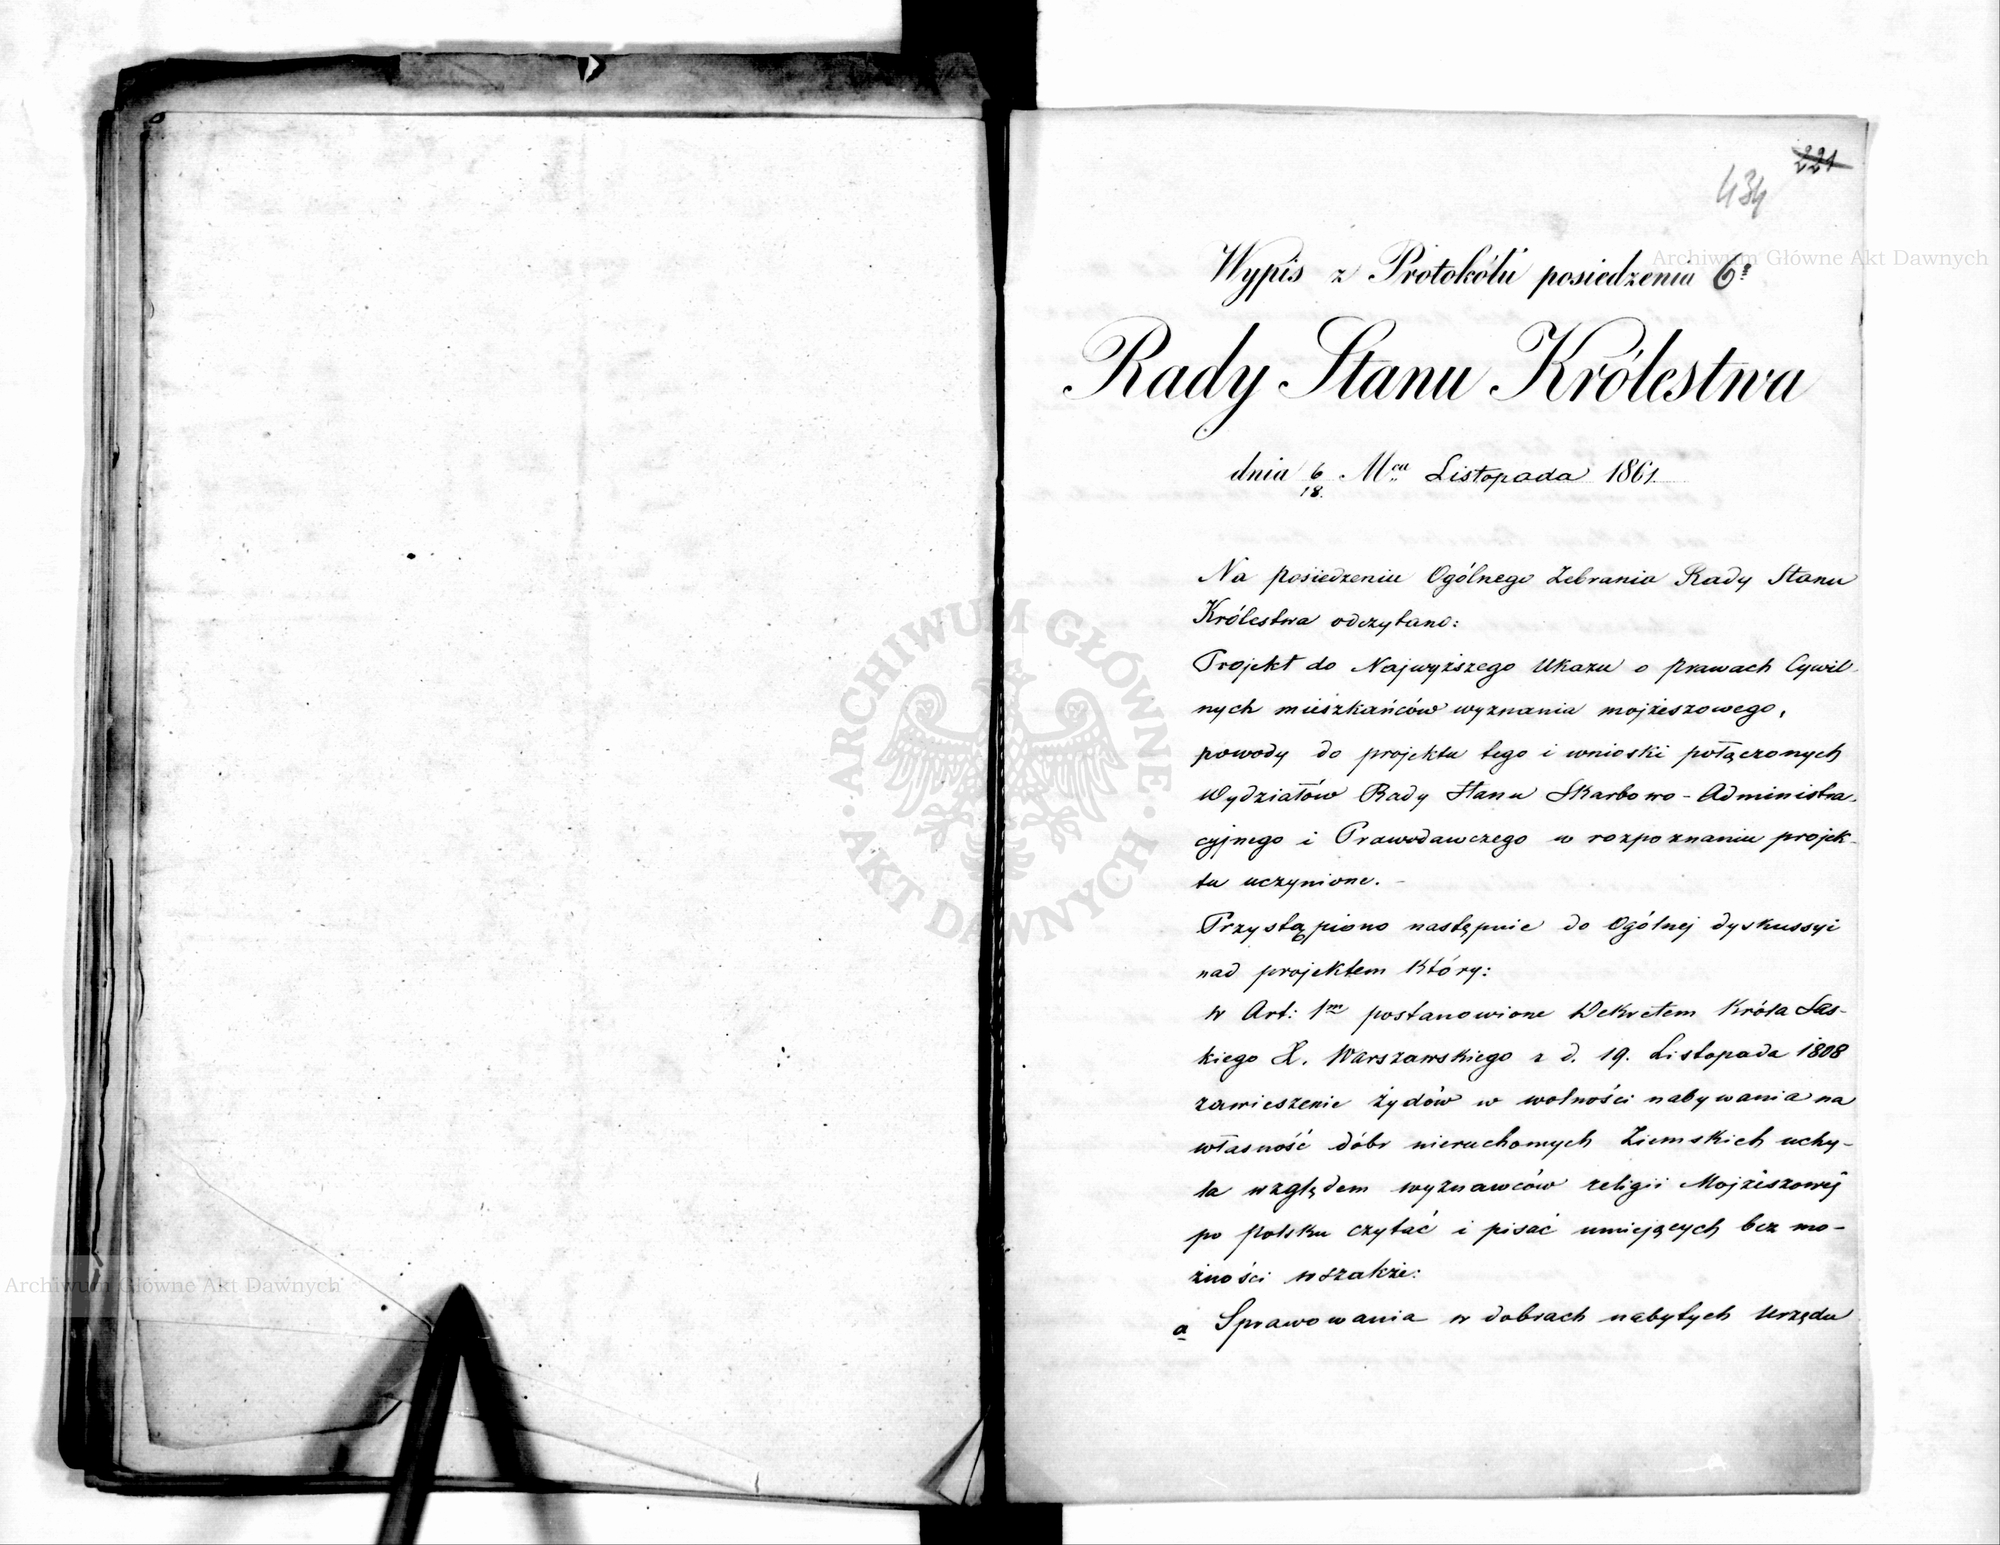 221
434
Archiwum Główne Akt Dawnych
Wypis z Protokółu posiedzenia 6º
Rady Stanu Królestwa
dnia 6/18. Mca Listopada 1861.
Na posiedzeniu Ogólnego Zebrania Rady Stanu
Królestwa odczytano:
Projekt do Najwyższego Ukazu o prawach Cywil-
nych mieszkańców wyznania mojżeszowego,
powody do projektu tego i wnioski połączonych
Wydziałów Rady Stanu Skarbowo-Administra-
cyjnego i Prawodawczego w rozpoznaniu projek-
tu uczynione. -
Przystąpiono następnie do Ogólnej dyskussyi
nad projektem który:
w Art: 1m postanowione Dekretem Króla Sas-
kiego X. Warszawskiego z d. 19. Listopada 1808
zawieszenie żydów w wolności nabywania na
własność dóbr nieruchomych Ziemskich uchy-
la względem wyznawców religii Mojżeszowej
po polsku czytać i pisać umiejących bez mo-
żności wszakże:
a Sprawowania w dobrach nabytych Urzędu
ARCHIWUM GŁÓWNE · AKT DAWNYCH ·
Archiwum Główne Akt Dawnych